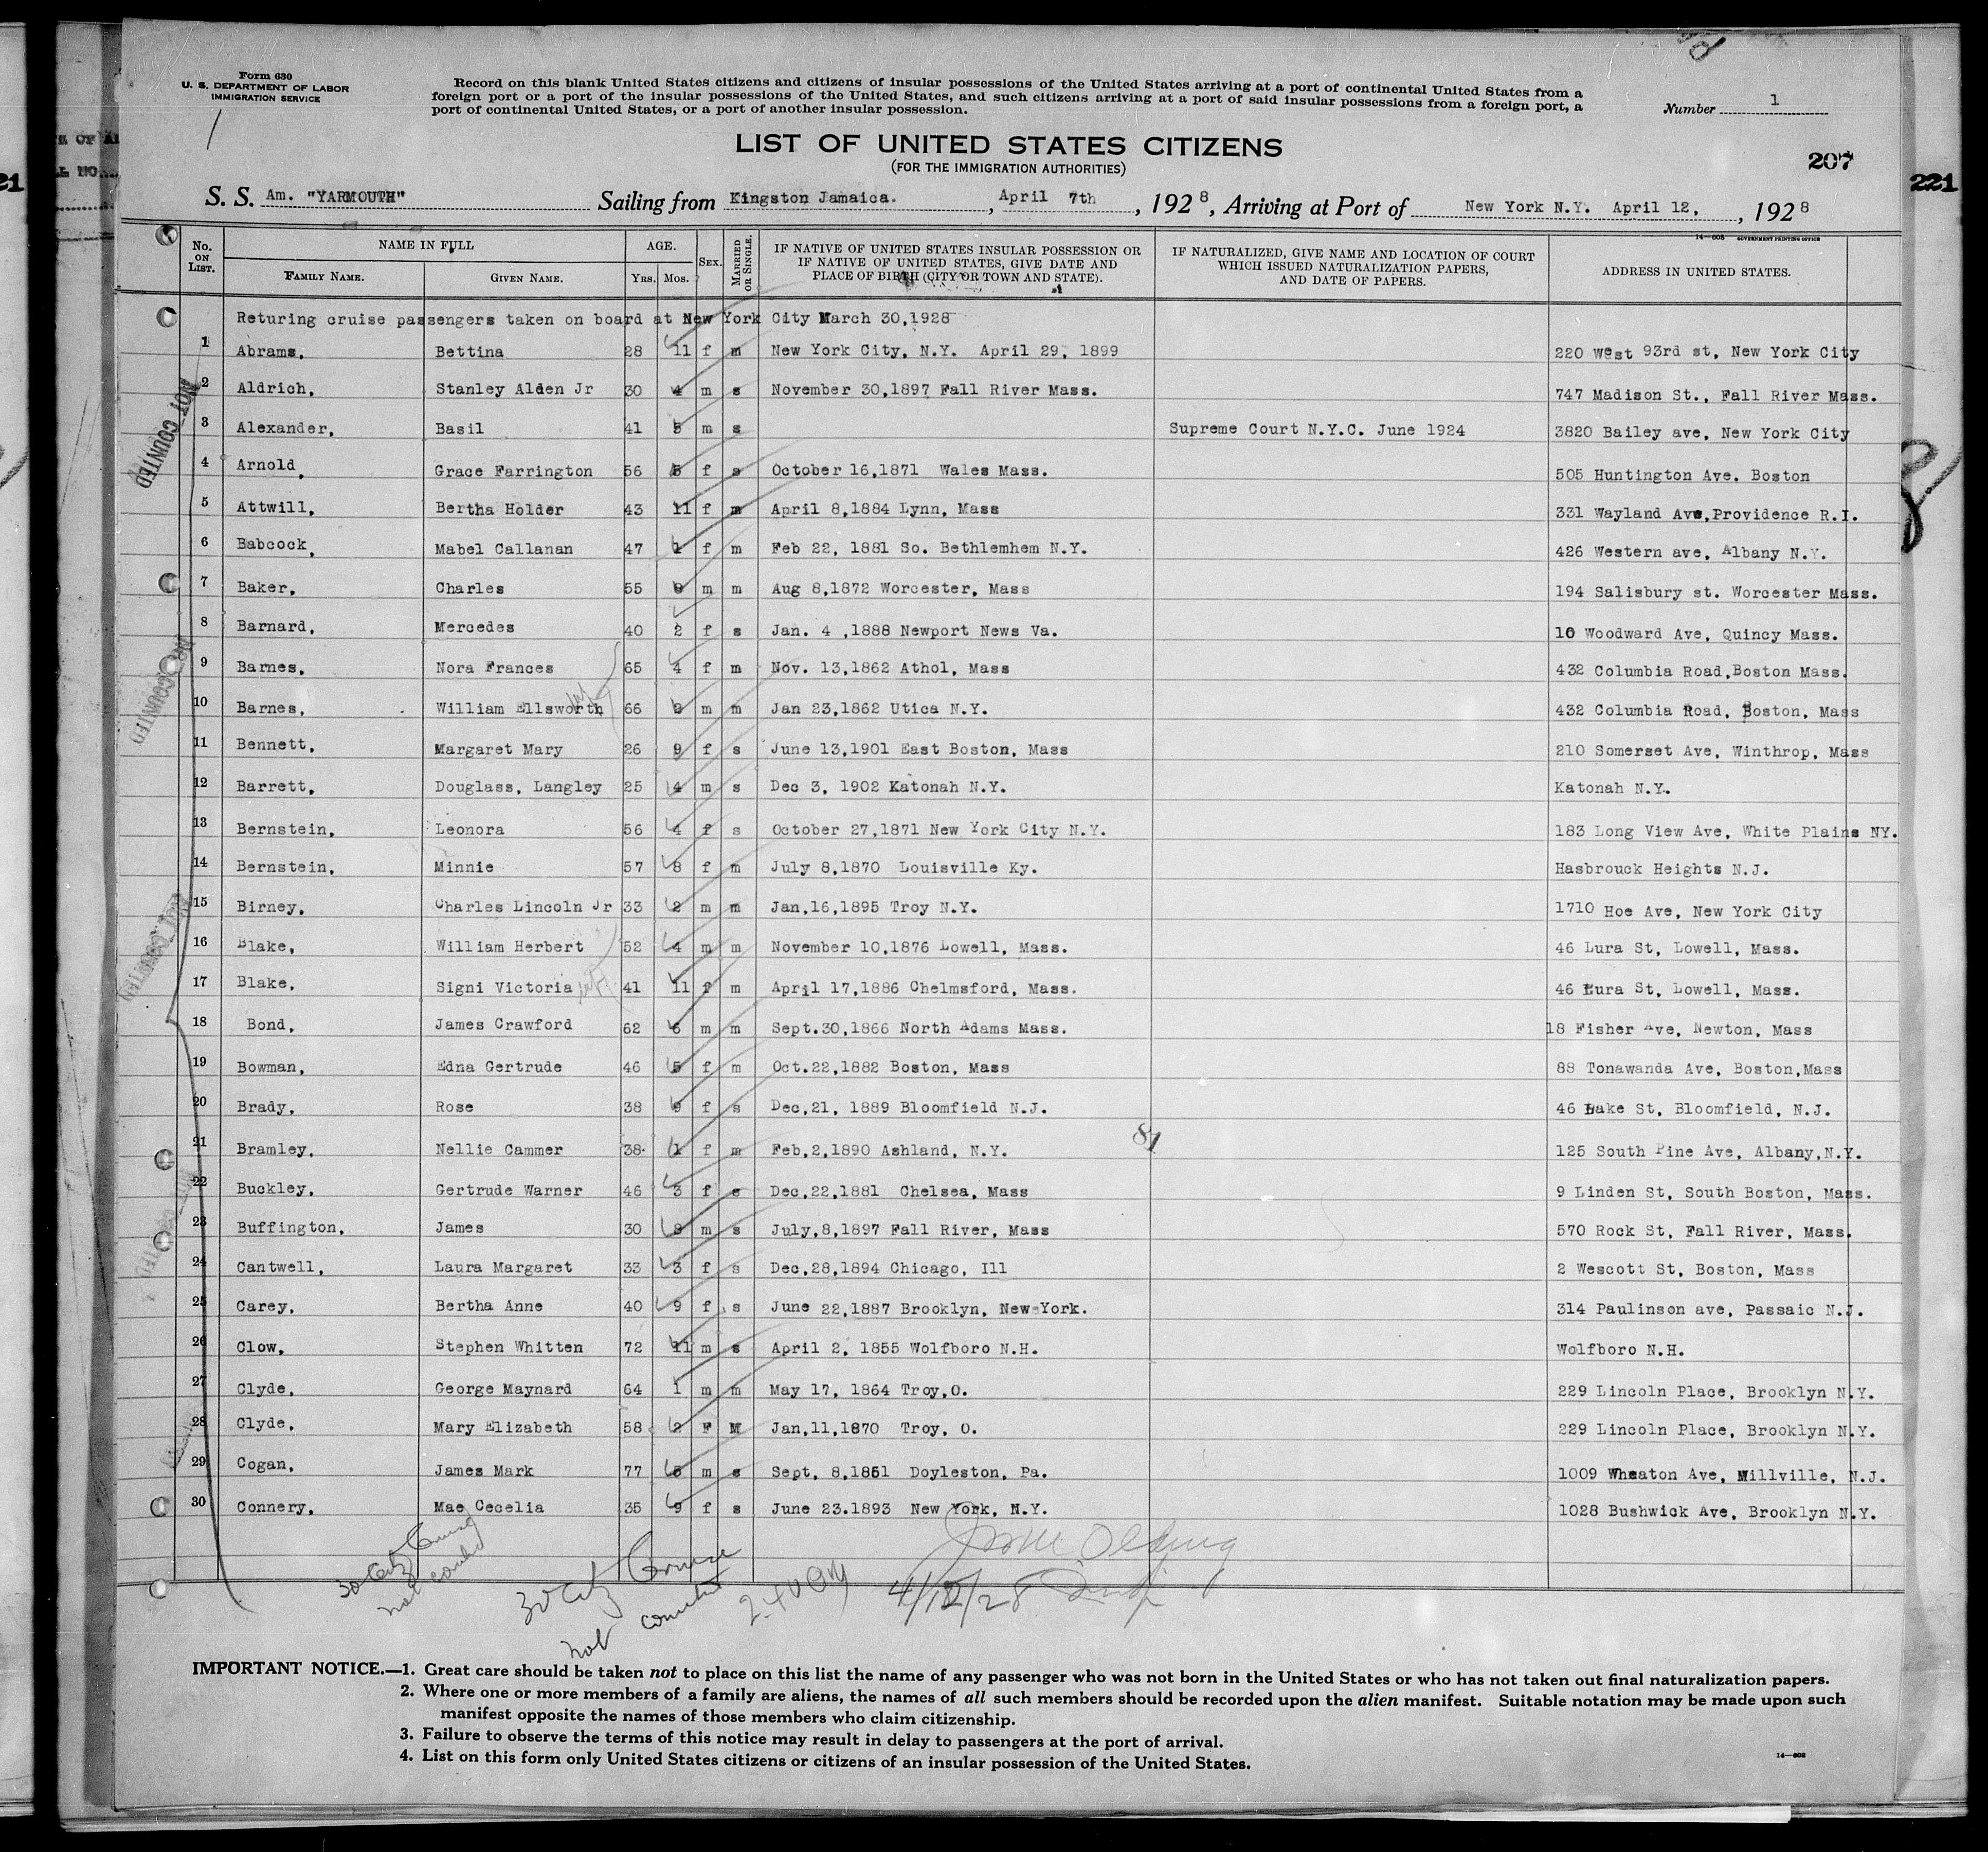 Form 630
U. S. DEPARTMENT OF LABOR
IMMIGRATION SERVICE
Record on this blank United States citizens and citizens of insular possessions of the United States arriving at a port of continental United States from a
foreign port or a port of the insular possessions of the United States, and such citizens arriving at a port of said insular possessions from a foreign port, a
port of continental United States, or a port of another insular possession.
Number 1
LIST OF UNITED STATES CITIZENS
(FOR THE IMMIGRATION AUTHORITIES)
207
221
S. S. Am. "YARMOUTH" Sailing from Kingston Jamaica. , April 7th , 1928, Arriving at Port of New York N.Y. April 12, , 1928
14—608 GOVERNMENT PRINTING OFFICE
No. ON LIST. NAME IN FULL FAMILY NAME. GIVEN NAME. AGE. YRS. MOS. SEX. MARRIED OR SINGLE. IF NATIVE OF UNITED STATES INSULAR POSSESSION OR IF NATIVE OF UNITED STATES, GIVE DATE AND PLACE OF BIRTH (CITY OR TOWN AND STATE). IF NATURALIZED, GIVE NAME AND LOCATION OF COURT WHICH ISSUED NATURALIZATION PAPERS, AND DATE OF PAPERS. ADDRESS IN UNITED STATES.
Returing cruise passengers taken on board at New York City March 30,1928
1 Abrams, Bettina 28 11 f m New York City, N.Y. April 29, 1899 220 West 93rd st, New York City
2 Aldrich, Stanley Alden Jr 30 4 m s November 30,1897 Fall River Mass. 747 Madison St., Fall River Mass.
3 Alexander, Basil 41 5 m s Supreme Court N.Y.C. June 1924 3820 Bailey ave, New York City
4 Arnold, Grace Farrington 56 5 f s October 16,1871 Wales Mass. 505 Huntington Ave. Boston
5 Attwill, Bertha Holder 43 11 f m April 8,1884 Lynn, Mass 331 Wayland Ave,Providence R.I.
6 Babcock, Mabel Callanan 47 1 f m Feb 22, 1881 So. Bethlemhem N.Y. 426 Western ave, Albany N.Y.
7 Baker, Charles 55 m m Aug 8,1872 Worcester, Mass 194 Salisbury st. Worcester Mass.
8 Barnard, Mercedes 40 2 f s Jan. 4 ,1888 Newport News Va. 10 Woodward Ave, Quincy Mass.
9 Barnes, Nora Frances 65 4 f m Nov. 13,1862 Athol, Mass 432 Columbia Road,Boston Mass.
10 Barnes, William Ellsworth 66 2 m m Jan 23,1862 Utica N.Y. 432 Columbia Road, Boston, Mass
11 Bennett, Margaret Mary 26 9 f s June 13,1901 East Boston, Mass 210 Somerset Ave, Winthrop, Mass
12 Barrett, Douglass, Langley 25 4 m s Dec 3, 1902 Katonah N.Y. Katonah N.Y.
13 Bernstein, Leonora 56 4 f s October 27,1871 New York City N.Y. 183 Long View Ave, White Plains NY.
14 Bernstein, Minnie 57 8 f m July 8,1870 Louisville Ky. Hasbrouck Heights N.J.
15 Birney, Charles Lincoln Jr 33 2 m m Jan,16,1895 Troy N.Y. 1710 Hoe Ave, New York City
16 Blake, William Herbert 52 4 m m November 10,1876 Lowell, Mass. 46 Lura St, Lowell, Mass.
17 Blake, Signi Victoria 41 11 f m April 17,1886 Chelmsford, Mass. 46 Lura St, Lowell, Mass.
18 Bond, James Crawford 62 6 m m Sept.30,1866 North Adams Mass. 18 Fisher Ave, Newton, Mass
19 Bowman, Edna Gertrude 46 5 f m Oct.22,1882 Boston, Mass 88 Tonawanda Ave, Boston,Mass
20 Brady, Rose 38 9 f s Dec,21, 1889 Bloomfield N.J. 46 Lake St, Bloomfield, N.J.
21 Bramley, Nellie Cammer 38 1 f m Feb,2,1890 Ashland, N.Y. 125 South Pine Ave, Albany,N.Y.
22 Buckley, Gertrude Warner 46 3 f s Dec,22,1881 Chelsea, Mass 9 Linden St, South Boston, Mass.
23 Buffington, James 30 8 m s July,8,1897 Fall River, Mass 570 Rock St, Fall River, Mass.
24 Cantwell, Laura Margaret 33 3 f s Dec,28,1894 Chicago, Ill 2 Wescott St, Boston, Mass
25 Carey, Bertha Anne 40 9 f s June 22,1887 Brooklyn, New York. 314 Paulinson ave, Passaic N.J.
26 Clow, Stephen Whitten 72 11 m s April 2, 1855 Wolfboro N.H. Wolfboro N.H.
27 Clyde, George Maynard 64 1 m m May 17, 1864 Troy,O. 229 Lincoln Place, Brooklyn N.Y.
28 Clyde, Mary Elizabeth 58 2 F M Jan,11,1870 Troy, O. 229 Lincoln Place, Brooklyn N.Y.
29 Cogan, James Mark 77 5 m s Sept, 8,1851 Doyleston, Pa. 1009 Wheaton Ave, Millville, N.J.
30 Connery, Mae Cecelia 35 9 f s June 23.1893 New York, N.Y. 1028 Bushwick Ave, Brooklyn N.Y.
NOT COUNTED
NOT COUNTED
NOT COUNTED
30 Citz Cruise
not counted
30 Citz Cruise
not counted
4/12/28
IMPORTANT NOTICE.—1. Great care should be taken not to place on this list the name of any passenger who was not born in the United States or who has not taken out final naturalization papers.
2. Where one or more members of a family are aliens, the names of all such members should be recorded upon the alien manifest. Suitable notation may be made upon such
manifest opposite the names of those members who claim citizenship.
3. Failure to observe the terms of this notice may result in delay to passengers at the port of arrival.
4. List on this form only United States citizens or citizens of an insular possession of the United States.
14—608